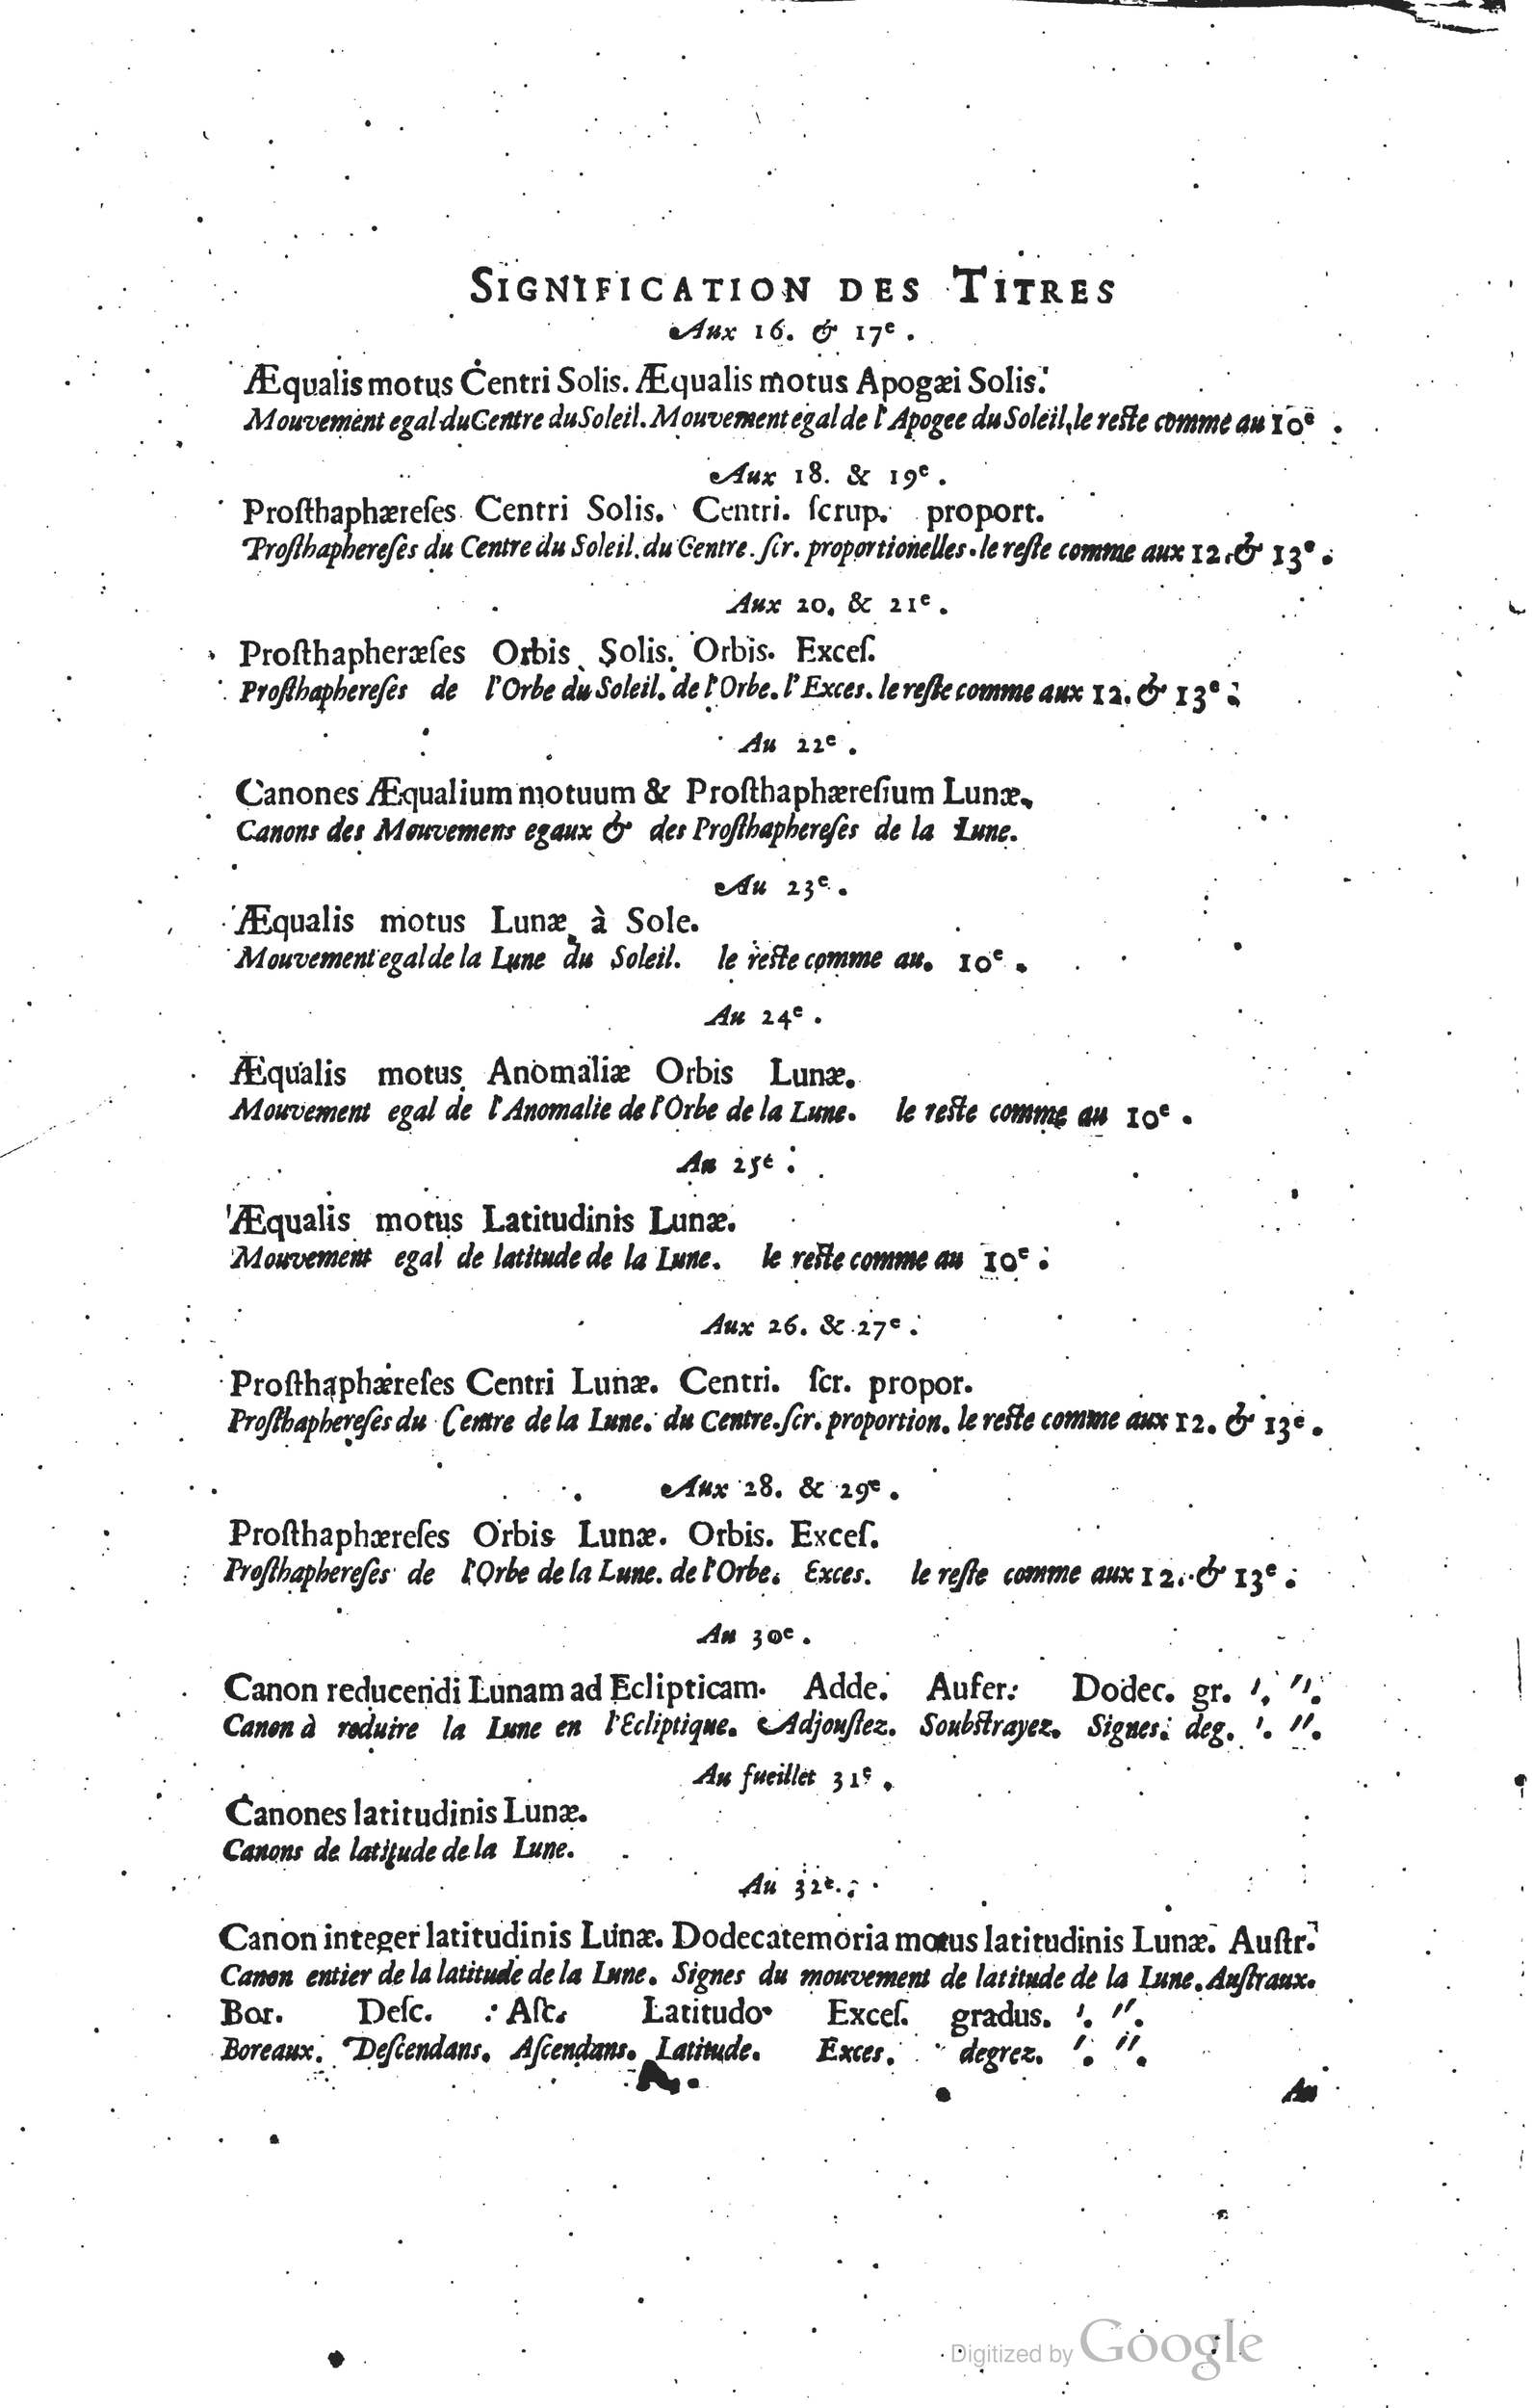 SIGNIFICATION DES TITRES
Aux 16. & 17e.
Æqualis motus Centri Solis. Æqualis motus Apogæi Solis.
Mouvement egal du Centre du Soleil. Mouvement egal de l'Apogee du Soleil, le reste comme au 10e.
Aux 18. & 19e.
Prosthaphæreſes Centri Solis. Centri. ſcrup. proport.
Prosthaphereſes du Centre du Soleil. du Centre. ſcr. proportionelles. le reſte comme aux 12. & 13e.
Aux 20. & 21e.
Proſthapheræſes Orbis Solis. Orbis. Exceſ.
Proſthaphereſes de l'Orbe du Soleil. de l'Orbe. l'Exces. le reſte comme aux 12. & 13e.
Au 22e.
Canones Æqualium motuum & Proſthaphæreſium Lunæ.
Canons des Mouvemens egaux & des Proſthaphereſes de la Lune.
Au 23e.
Æqualis motus Lunæ à Sole.
Mouvement egal de la Lune du Soleil. le reste comme au. 10e.
Au 24e.
Æqualis motus Anomaliæ Orbis Lunæ.
Mouvement egal de l'Anomalie de l'Orbe de la Lune. le reste comme au 10e.
Au 25e.
Æqualis motus Latitudinis Lunæ.
Mouvement egal de latitude de la Lune. le reste comme au 10e.
Aux 26. & 27e.
Proſthaphæreſes Centri Lunæ. Centri. ſcr. propor.
Proſthaphereſes du Centre de la Lune. du Centre. ſcr. proportion. le reste comme aux 12. & 13e.
Aux 28. & 29e.
Proſthaphæreſes Orbis Lunæ. Orbis. Exceſ.
Proſthaphereſes de l'Orbe de la Lune. de l'Orbe. Exces. le reſte comme aux 12. & 13e.
Au 30e.
Canon reducendi Lunam ad Eclipticam. Adde. Aufer. Dodec. gr. '. ''.
Canon à reduire la Lune en l'Ecliptique. Adjouſtez. Soubstrayez. Signes. deg. '. ''.
Au fueillet 31e.
Canones latitudinis Lunæ.
Canons de latitude de la Lune.
Au 32e.
Canon integer latitudinis Lunæ. Dodecatemoria motus latitudinis Lunæ. Auſtr.
Canon entier de la latitude de la Lune. Signes du mouvement de latitude de la Lune. Auſtraux.
Bor. Deſc. Aſc. Latitudo. Exceſ. gradus. '. ''.
Boreaux. Deſcendans. Aſcendans. Latitude. Exces. degrez. '. ''.
Au
Digitized by Google